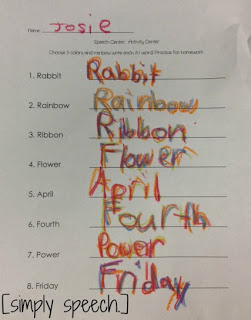 Name Josie
Speech Center: Activity Center
Choose 3 colors and rainbow write each /r/ word! Practice for homework.
1. Rabbit Rabbit
2. Rainbow Rainbow
3. Ribbon Ribbon
4. Flower Flower
5. April April
6. Fourth Fourth
7. Power Power
8. Friday Friday
[simply speech.]